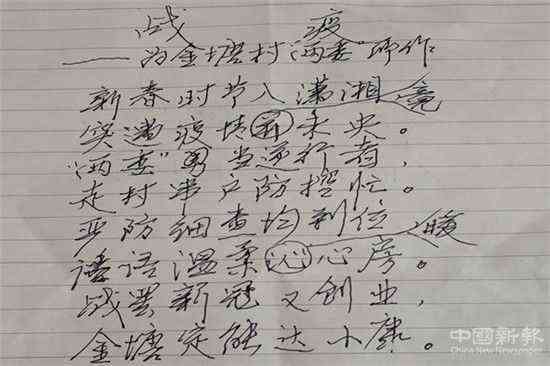 战疫
——为金塘村"两委"所作
新春时节入潇湘 竟
突遭疫情未央。
"两委"勇当逆行者，
走村串户防控忙。
严防细查均到位 暖
语语温柔沁心房。
战罢新冠又创业，
金塘定能达小康。
中國新報
China New Newspaper